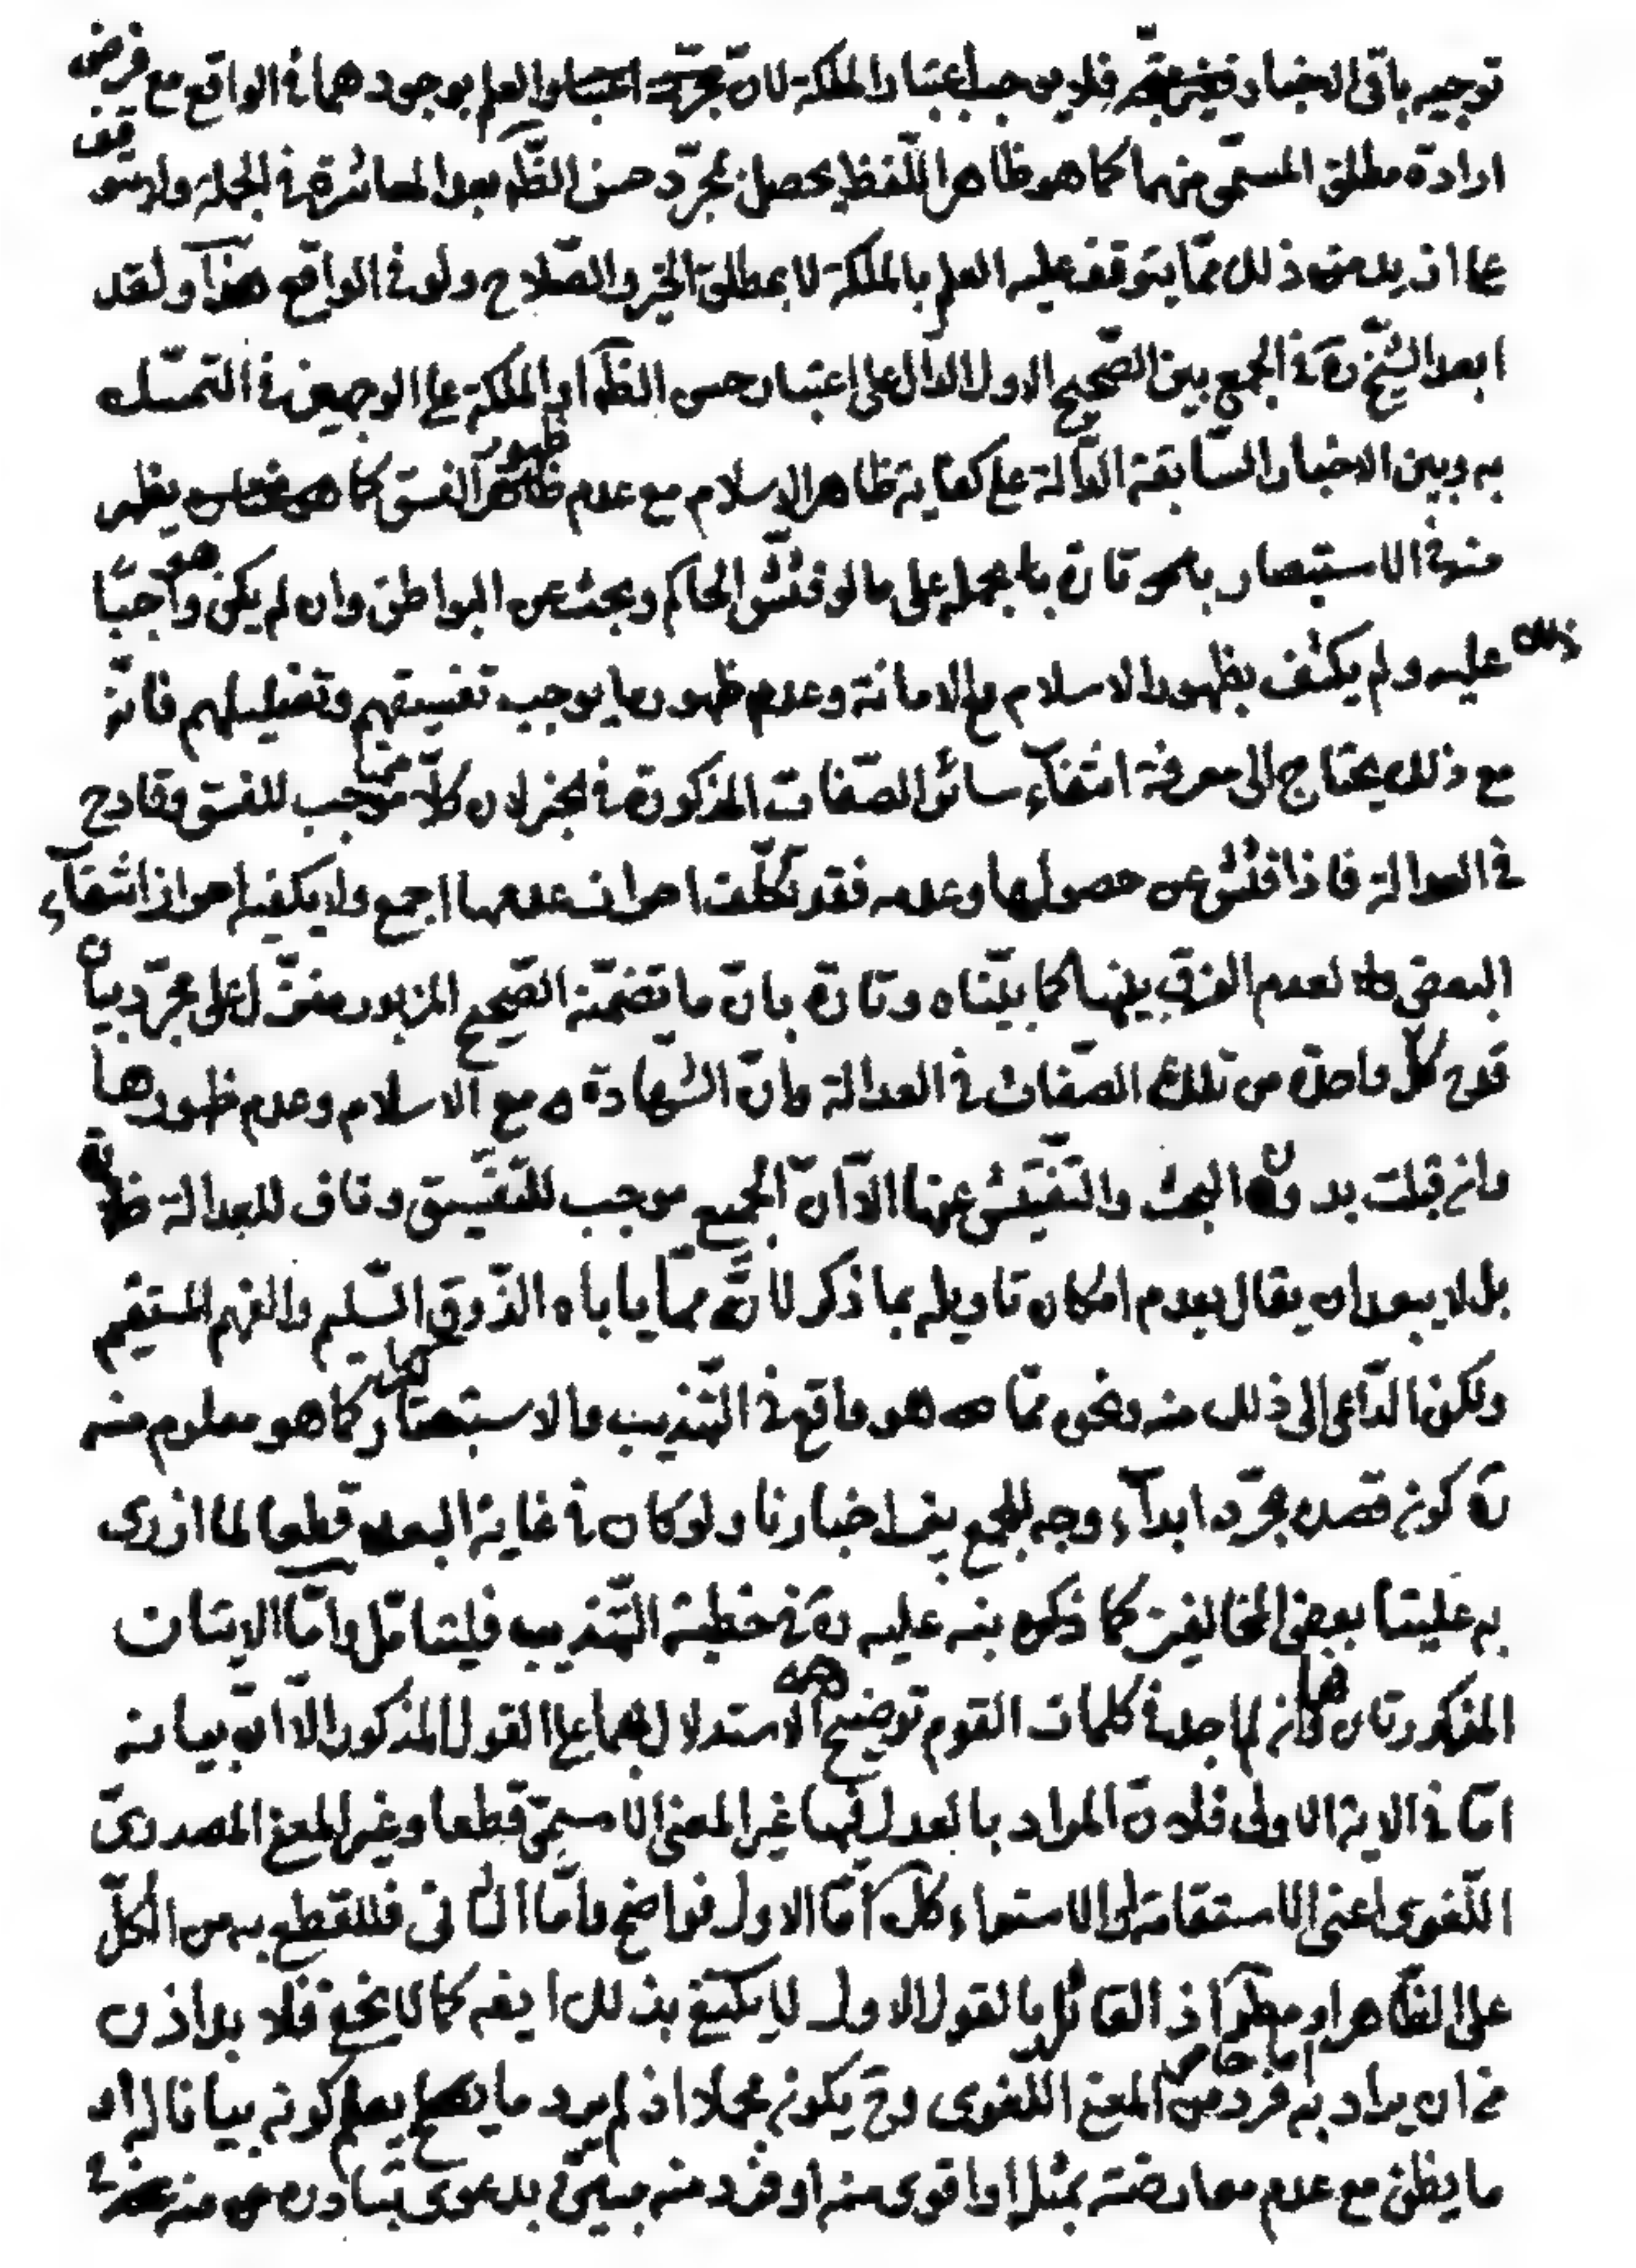 توجيه باقى الاخبار فلا يوجب اعتبار الملكة لانّ العلم بوجودهما فى الواقع مع فرض
ارادة مطلق المسمّى منهما كما هو ظاهر اللّفظ يحصل بمجرّد حسن الظّ بعد المعاشرة فى الجملة ولا يتوقف
على ازيد من ذلك ممّا يتوقف عليه العلم بالملكة لا بمطلق الخير والصّلاح ولو فى الواقع هذا ولقد
ابعد الشيخ ره فى الجمع بين الصّحيح الاول الدال على اعتبار حسن الظّ او الملكة على الوجهين فى التمسّك
به وبين الاخبار السّابقة الدّالة على كفاية ظاهر الاسلام مع عدم ظهور الفسق كما يظهر
منه فى الاستبصار تارة بحمله على ما لو فتّش الحاكم وبحث عن البواطن وان لم يكن هو واجبًا
عليه ولم يكتف بظهور الاسلام مع الامانة وعدم ظهور ما يوجب تفسيقهم وتضليلهم فانّه
مع ذلك يحتاج الى معرفة انتفاء سائر الصّفات المذكورة فى الخبر لان كلّا منها موجب للفسق وقادح
فى العدالة فاذا فتّش عن حصولها وعدمه فقد تكلّف احراز عدمها اجمع ولا يكفيه احراز انتفاء
البعض لعدم الفرق بينها كما بيّناه وتارة بانّ ما تضمّنه الصّحيح المزبور منزّل على مجرّد بيان
قدح كلّ واحدة من تلك الصّفات فى العدالة وانّ الشهادة مع الاسلام وعدم ظهورها
وان قبلت بدون البحث والتفتيش عنها الّا انّ الجميع موجب للتفسيق ومناف للعدالة
بل لا يبعد ان يقال بعدم امكان تاويله بما ذكر لانّه ممّا ياباه الذّوق السّليم والفهم المستقيم
ولكن الدّاعى الى ذلك منه ونحوه ممّا هو واقع فى التّهذيب والاستبصار كما هو معلوم منه
كونه قصده مجرّد ابداء وجه للجمع بين اخبارنا ولو كان فى غاية البعد قطعا لما ازرى
به علينا بعض المخالفين كما نبه عليه ره فى خطبة التّهذيب فليتامّل وامّا الايتان
المذكورتان فانه لم اجد فى كلمات القوم توضيح الاستدلال بهما على القول المذكور الّا ان بيانه
امّا فى الاية الاولى فلانّ المراد بالعدل فيها غير المعنى الاسمىّ قطعا وغير المعنى المصدرىّ
اللّغوى اعنى الاستقامة او الاستواء كل امّا الاول فواضح وامّا الثانى فللقطع به من الكلّ
على الظّاهر او مط اذ القائل بالقول الاول لا يكتفى بذلك ايضا كما لا يخفى فلا بد اذن
من ان يراد به فرد خاص من المعنى اللغوى وح يكون مجملا اذ لم يرد ما يعلم كونه بيانا له او
ما يظن مع عدم معارضته بمثله او اقوى منه او فرد منه مبيّن بدعوى تبادره منه